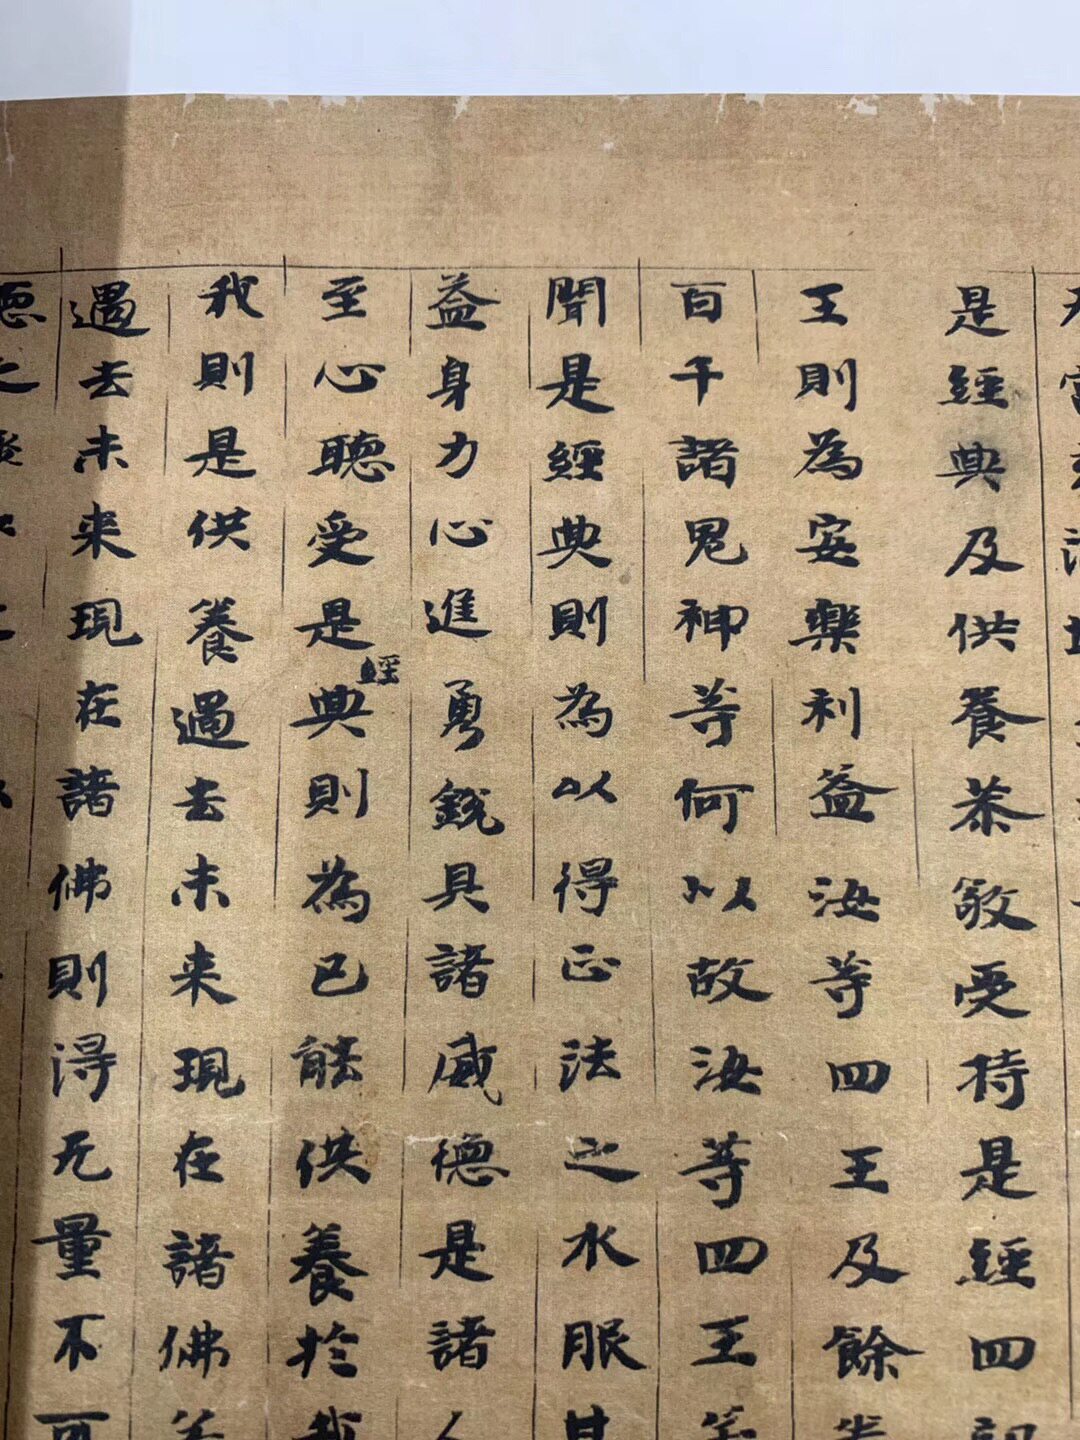 是經典及供養恭敬受持是經四
王則為安樂利益汝等四王及餘
百千諸鬼神等何以故汝等四王等
聞是經典則為以得正法之水服甘
益身力心進勇銳具諸威德是諸人
至心聽受是經典則為已能供養於我
我則是供養過去未來現在諸佛若
過去未来現在諸佛則得无量不可